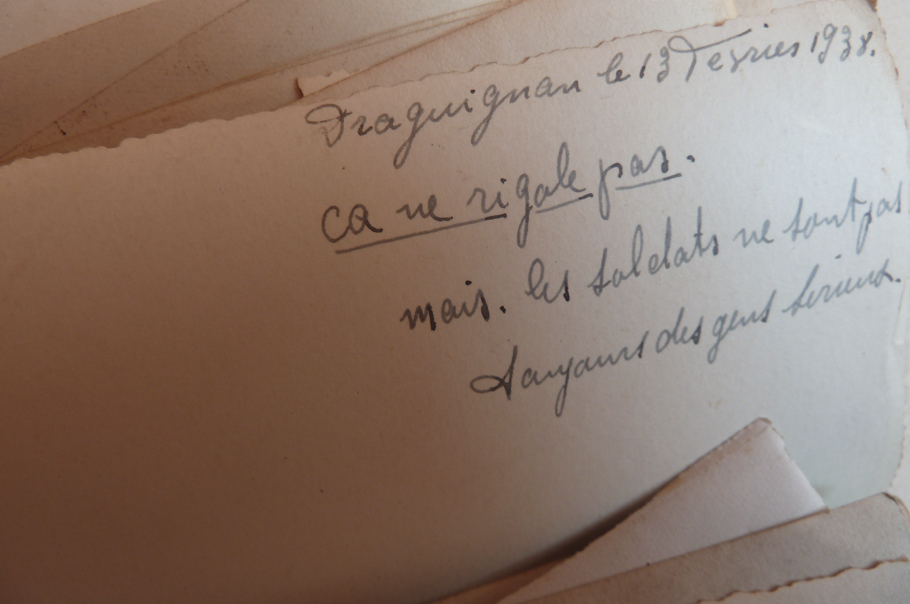 Draguignan le 13 Fevrier 1938.
ca ne rigole pas.
mais. les soldats ne sont pas
toujours des gens serieux.